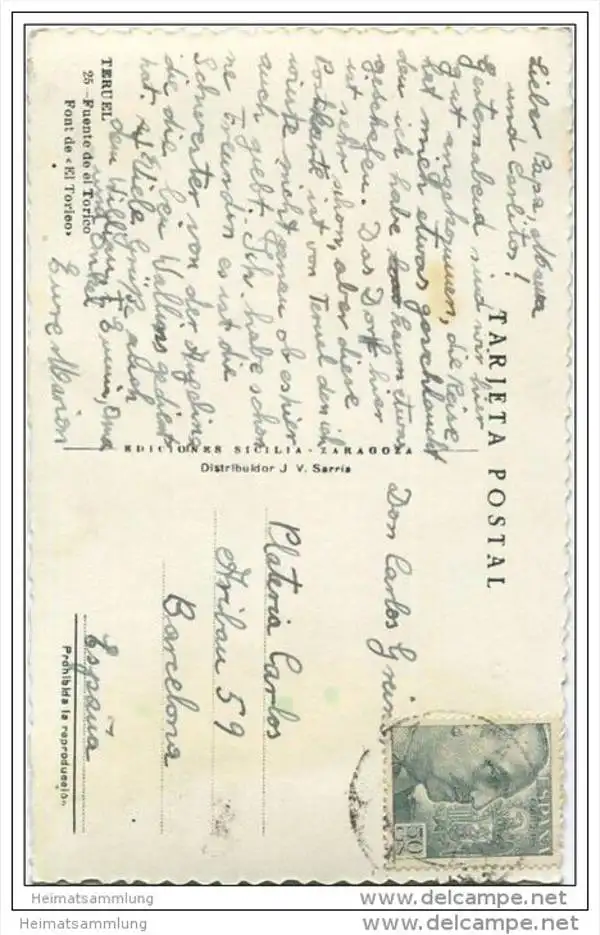 TARJETA POSTAL
Lieber Papa, Mama
und Carlitos!
Gesternabend sind wir hier
gut angekommen, die Reise
hat mich etwas geschlaucht
den ich habe kaum etwas
geschlafen. Das Dorf hier
ist sehr schön, aber diese
Postkarte ist von Teruel den ich
wüste nicht genau ob es hier
auch giebt. Ich habe schon
ne Freundin es ist die
Schwester von der Angelina
die die bei Wallins gedient
hat. Viele Grüße auch
den William, Oma
und Onkel
Eure Marion
TERUEL
25 - Fuente de el Torico
Font de «El Torico»
EDICIONES SICILIA - ZARAGOZA
Distribuidor J. V. Sarría
Don Carlos
Plateria Carlos
Aribau 59
Barcelona
España
Prohibida la reproducción
ESPAÑA
CORREOS
50
CTS
Heimatsammlung
www.delcampe.net
Heimatsammlung
www.delcampe.net